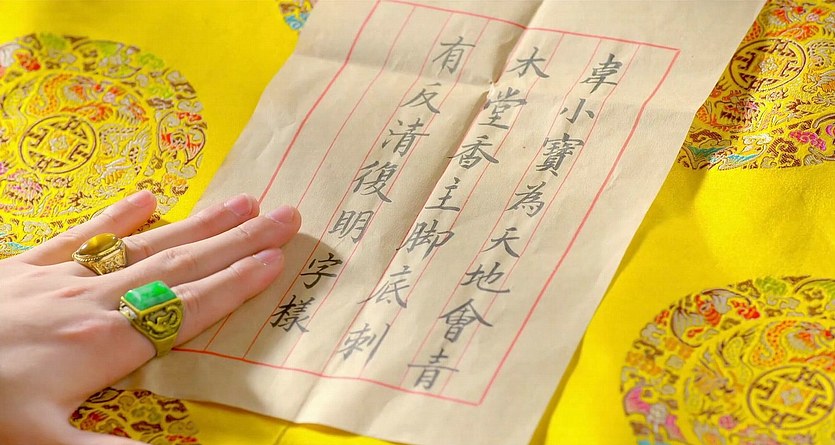 韋小寶為天地會青
木堂香主脚底刺
有反清復明字樣